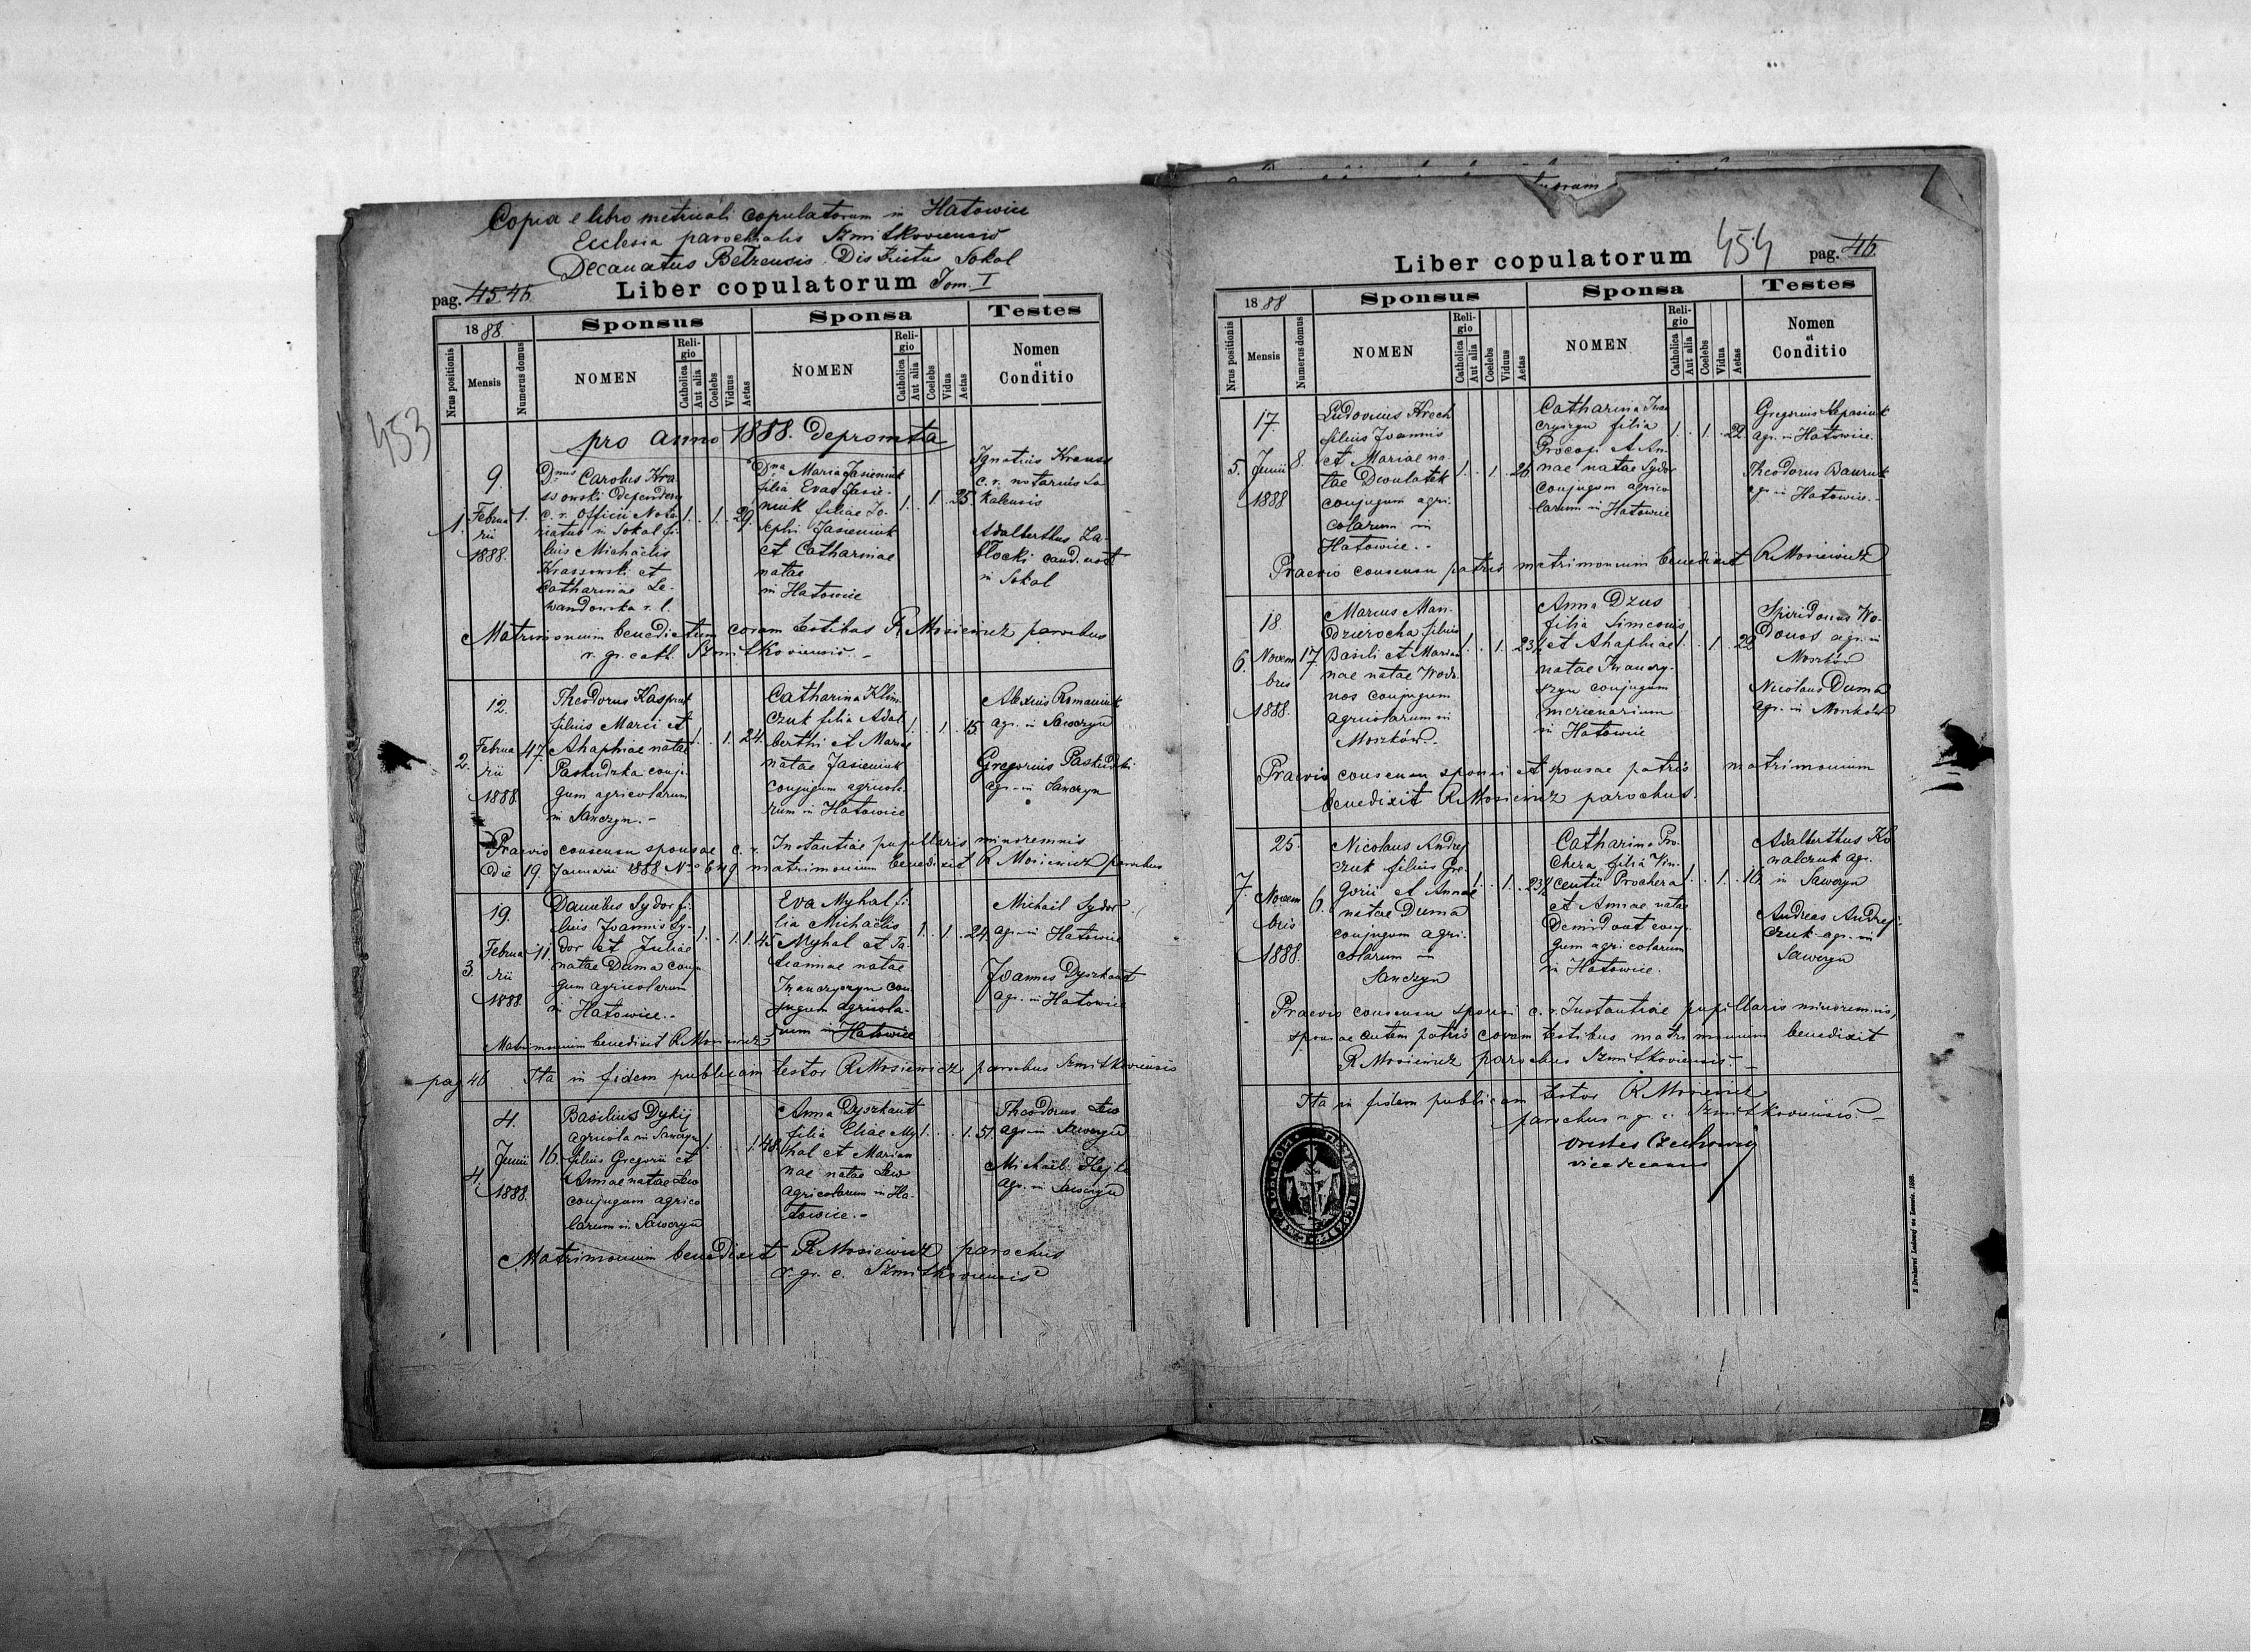 Copia e libro metricali copulatorum in Hatowice
Ecclesia parochialis Szmitkoviensis
Decanatus Bełzensis Districtus Sokal
pag. 45 46
Liber copulatorum Tom. I
453
1888.
Sponsus
Sponsa
Testes
Nrus positionis
Mensis
Numerus domus
NOMEN
Religio
Catholica
Aut alia
Coelebs
Viduus
Aetas
NOMEN
Religio
Catholica
Aut alia
Coelebs
Vidua
Aetas
Nomen
et
Conditio
pro anno 1888. depromta
1.
9.
Februa
rii
1888.
1.
Dnus Carolus Kra
ssowski dependens
c. r. Officii Nota
riatus in Sokal fi-
lius Michaelis
Krassowski et
Catharinae Le-
wandowska r. l.
1. . 1. . 29.
Dna Maria Jasieniuk
filia Evae Jasie-
niuk filiae Jo-
sephi Jasieniuk
et Catharinae
natae
in Hatowice
1. . 1. . 25.
Ignatius Krauss
c. r. notarius So-
kalensis
Adalberthus Za-
błocki cand. not
in Sokal
Matrimonium benedictum coram testibus R Mosiewicz parochus
r. gr. cath. Szmitkoviensis. -
2.
12.
Februa
rii
1888
47.
Theodorus Kasprut
filius Marci et
Ahaphiae natae
Paskudzka conju-
gum agricolarum
in Sawczyn. -
1. . 1. 24.
Catharina Klim
czuk filia Adal-
berthi et Mariae
natae Jasieniuk
conjugum agricola-
rum in Hatowice
1. . 1. 15.
Alexius Romaniuk
agr. in Sawczyn
Gregorius Paskudzki
agr. in Sawczyn
Praevio consensu sponsae c. r. Instantiae pupillaris minorennis
die 19 Januarii 1888 Nro 649 matrimonium benedixit R Mosiewicz parochus
3.
19.
Februa
rii
1888.
11.
Daniel Sydor fi-
lius Joannis Sy-
dor et Juliae
natae Duma conju
gum agricolarum
in Hatowice. -
1. . 1. 1. 45.
Eva Myhal fi-
lia Michaelis
Myhal et Ta-
tiannae natae
Iwanczyszyn con
jugum agricola-
rum in Hatowice
1. . 1. . 24.
Michail Sydor
agr. in Hatowice
Joannes Dyszkant
agr. in Hatowice
Matrimonium benedixit R Mosiewicz
pag 46 Ita in fidem publicam testor R Mosiewicz parochus Szmitkoviensis
4.
4.
Junii
1888.
16.
Basilius Dykij
agricola in Sawczyn
filius Gregorii et
Annae natae Lew
conjugum agrico
larum in Sawczyn
1. . . 1. 48.
Anna Dyszkant
filia Eliae My
hal et Marian
nae natae Lew
agricolarum in Ha-
towice. -
1. . . 1. 51.
Theodorus Lew
agr. in Sawczyn
Michaël Hejlo
agr. in Sawczyn
Matrimonium benedixit R Mosiewicz parochus
r. gr. c. Szmitkoviensis
Liber copulatorum
454
pag. 46
1888
Sponsus
Sponsa
Testes
Nrus positionis
Mensis
Numerus domus
NOMEN
Religio
Catholica
Aut alia
Coelebs
Viduus
Aetas
NOMEN
Religio
Catholica
Aut alia
Coelebs
Vidua
Aetas
Nomen
et
Conditio
5.
17.
Junii
1888
8.
Ludovicus Hrech
filius Joannis
et Mariae na-
tae Dwulatek
conjugum agri-
colarum in
Hatowice. -
1. . 1. 26.
Catharina Iwan
czyszyn filia
Procopi et An-
nae natae Sydor
conjugum agrico
larum in Hatowice
1. . 1. . 22.
Gregorius
agr. in Hatowice.
Theodorus
agr. in Hatowice. -
Praevio consensu patris matrimonium benedixit R Mosiewicz
6.
18
Novem
bris
1888.
17.
Marcus Man-
dzierocha filius
Basili et Marian
nae natae Wodo
nos conjugum
agricolarum in
Moszków. -
1. . 1. 23½
Anna Dzus
filia Simeonis
et Ahaphiae
natae Iwanczy-
szyn conjugum
mercenarium
in Hatowice
1. . 1. 22
Spiridonus Wo-
donos agr. in
Moszków
Nicolaus Duma
agr. in Moszków
Praevio consensu sponsi et sponsae patris matrimonium
benedixit R Mosiewicz parochus.
7.
25.
Novem
bris
1888.
6.
Nicolaus Andrej
czuk filius Gre-
gorii et Annae
natae Duma
conjugum agri-
colarum in
Sawczyn
1. . 1. . 23½
Catharina Pro-
chera filia Vin-
centii Prochera
et Annae natae
Demidont conju-
gum agricolarum
in Hatowice.
1. . 1. . 16
Adalberthus Ko
walczuk agr.
in Sawczyn
Andreas Andrej-
czuk agr. in
Sawczyn
Praevio consensu sponsi c. r. Instantiae pupillaris minorennis,
sponsae autem patris coram testibus matrimonium benedixit
R Mosiewicz parochus Szmitkoviensis. -
Ita in fidem publicam testor R Mosiewicz
parochus r. gr. c. Szmitkoviensis. -
vicedecanus
Z Drukarni Ludowej we Lwowie. 1888.